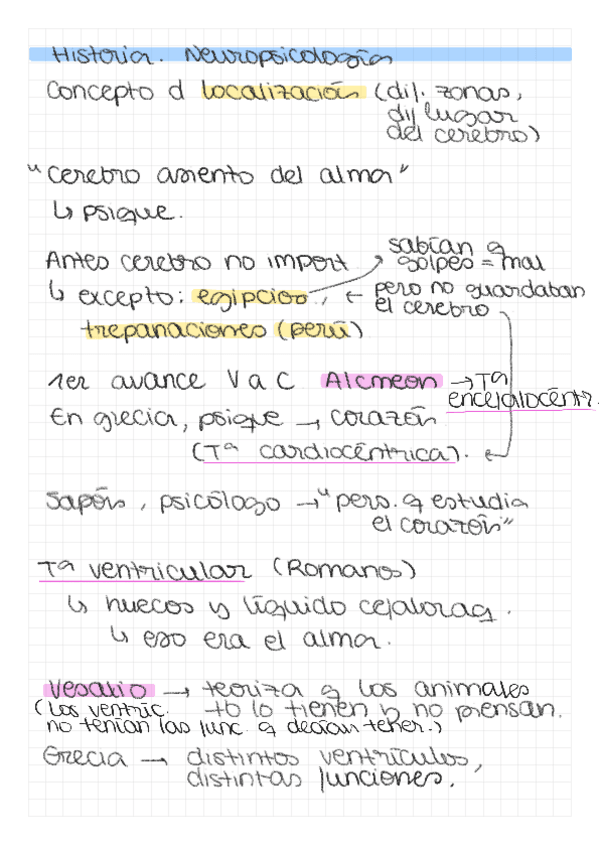 Historia. Neuropsicología
Concepto d localización (dif. zonas,
dif lugar
del cerebro)
"cerebro asiento del alma"
↳ psique.
Antes cerebro no import
↳ excepto: egipcios,
trepanaciones (perú)
sabían q
golpes = mal
← pero no guardaban
el cerebro
1er avance V a C Alcmeon → Tª
encefalocéntr.
En grecia, psique → corazón
(Tª cardiocéntrica).
Japón, psicólogo → "pers. q estudia
el corazón"
Tª ventricular (Romanos)
↳ huecos y líquido cefaloraq.
↳ eso era el alma.
Vesalio → teoriza q los animales
(Los ventríc. tb lo tienen y no piensan.
no tenían las func. q decían tener.)
Grecia → distintos ventrículos,
distintas funciones.